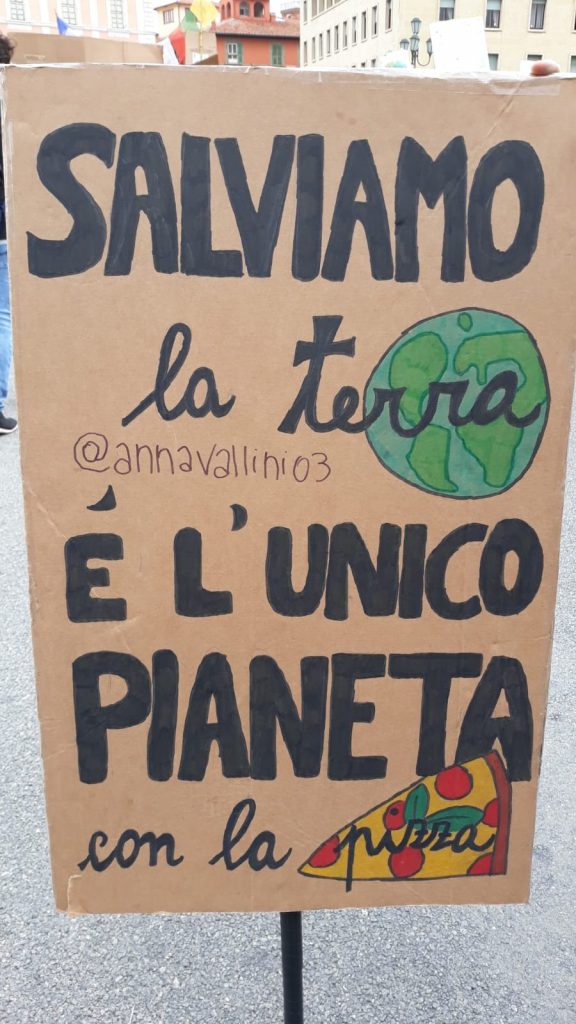 SALVIAMO
la terra
@annavallini03
É L'UNICO
PIANETA
con la pizza